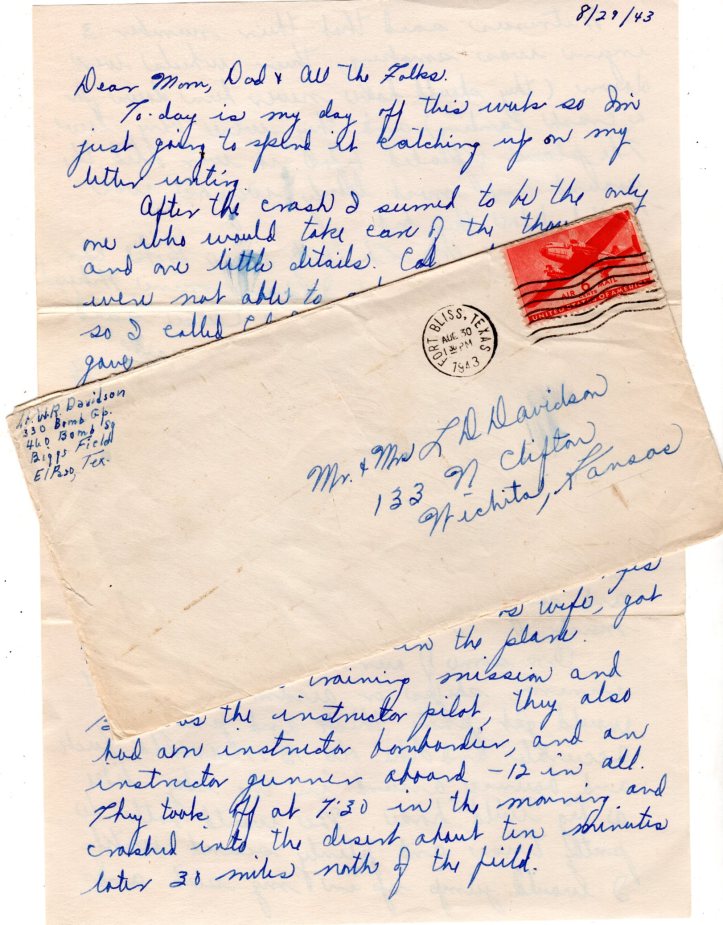 8/29/43
Dear Mom, Dad & All the Folks.
To-day is my day off this week so I'm
just going to spend it catching up on my
letter writing.
After the crash I seemed to be the only
one who would take care of the
and one little details.
were not able to
so I called
gave
AIR MAIL
UNITED STATES OF AMERICA
FORT BLISS, TEXAS
AUG 30
PM
1943
Lt. W.R. Davidson
330 Bomb Gp.
460 Bomb Sq
Biggs Field
El Paso, Tex.
Mr. & Mrs L D Davidson
133 N Clifton
Wichita, Kansas
wife, got
in the plane.
training mission and
the instructor pilot, they also
had an instructor bombardier, and an
instructor gunner aboard - 12 in all.
They took off at 7:30 in the morning and
crashed into the desert about ten minutes
later 30 miles north of the field.